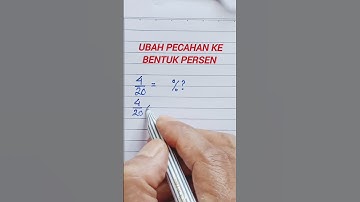 UBAH PECAHAN KE
BENTUK PERSEN
4/20 = %?
4/20